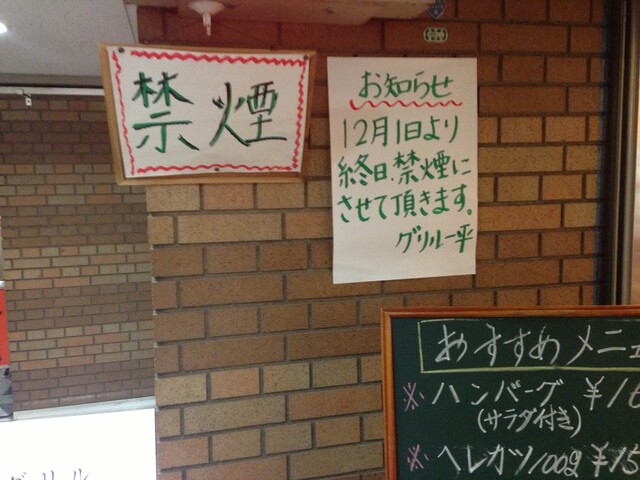 禁煙
お知らせ
12月1日より
終日、禁煙に
させて頂きます。
グリル一平
おすすめメニュ
※ハンバーグ ¥16
(サラダ付き)
※ヘレカツ100g ¥15
グリル